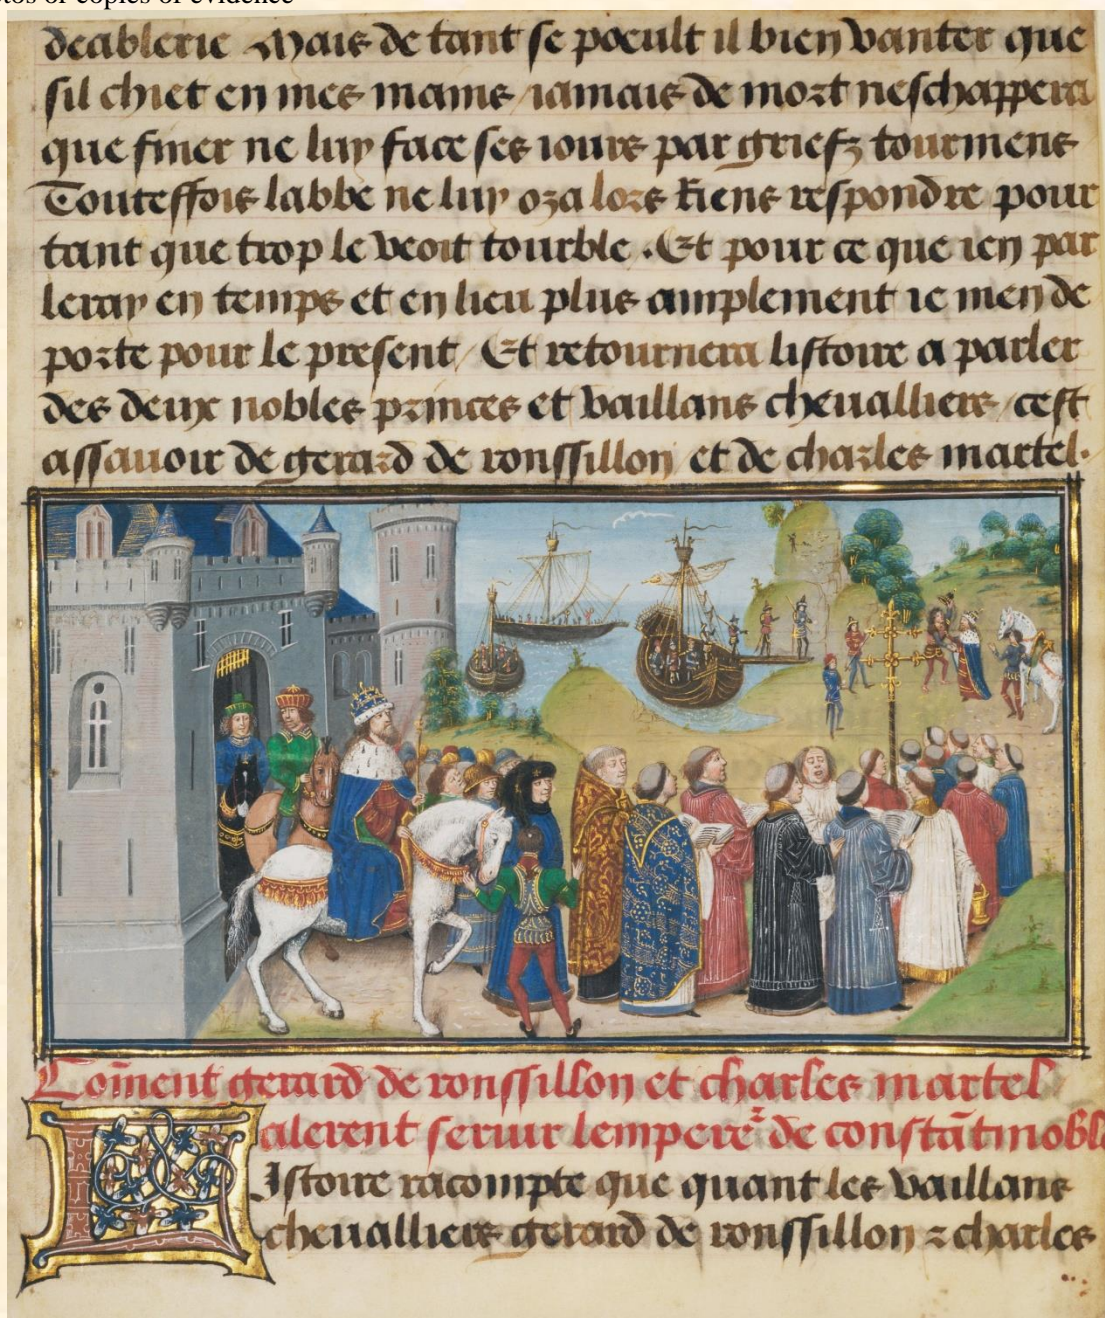 otos or copies of evidence
deablerie Mais de tant se poeult il bien vanter que
sil chiet en mes mains / iamais de mort neschappera
que finer ne luy face ses iours par griefz tourmens
Touteffois labbe ne luy oza lors Riens respondre pour
tant que trop le veoit tourble . Et pour ce que ien par
leray en temps et en lieu plus amplement ie men de
porte pour le present / Et retournera listoire a parler
des deux nobles princes et vaillans chevalliers / cest
assavoir de gerard de ronssillon et de charles martel .
Coment gerard de ronssillon et charles martel
alerent servir lempere de constãtinoble
L Istoire racompte que quant les vaillans
chevalliers gerard de ronssillon z charles